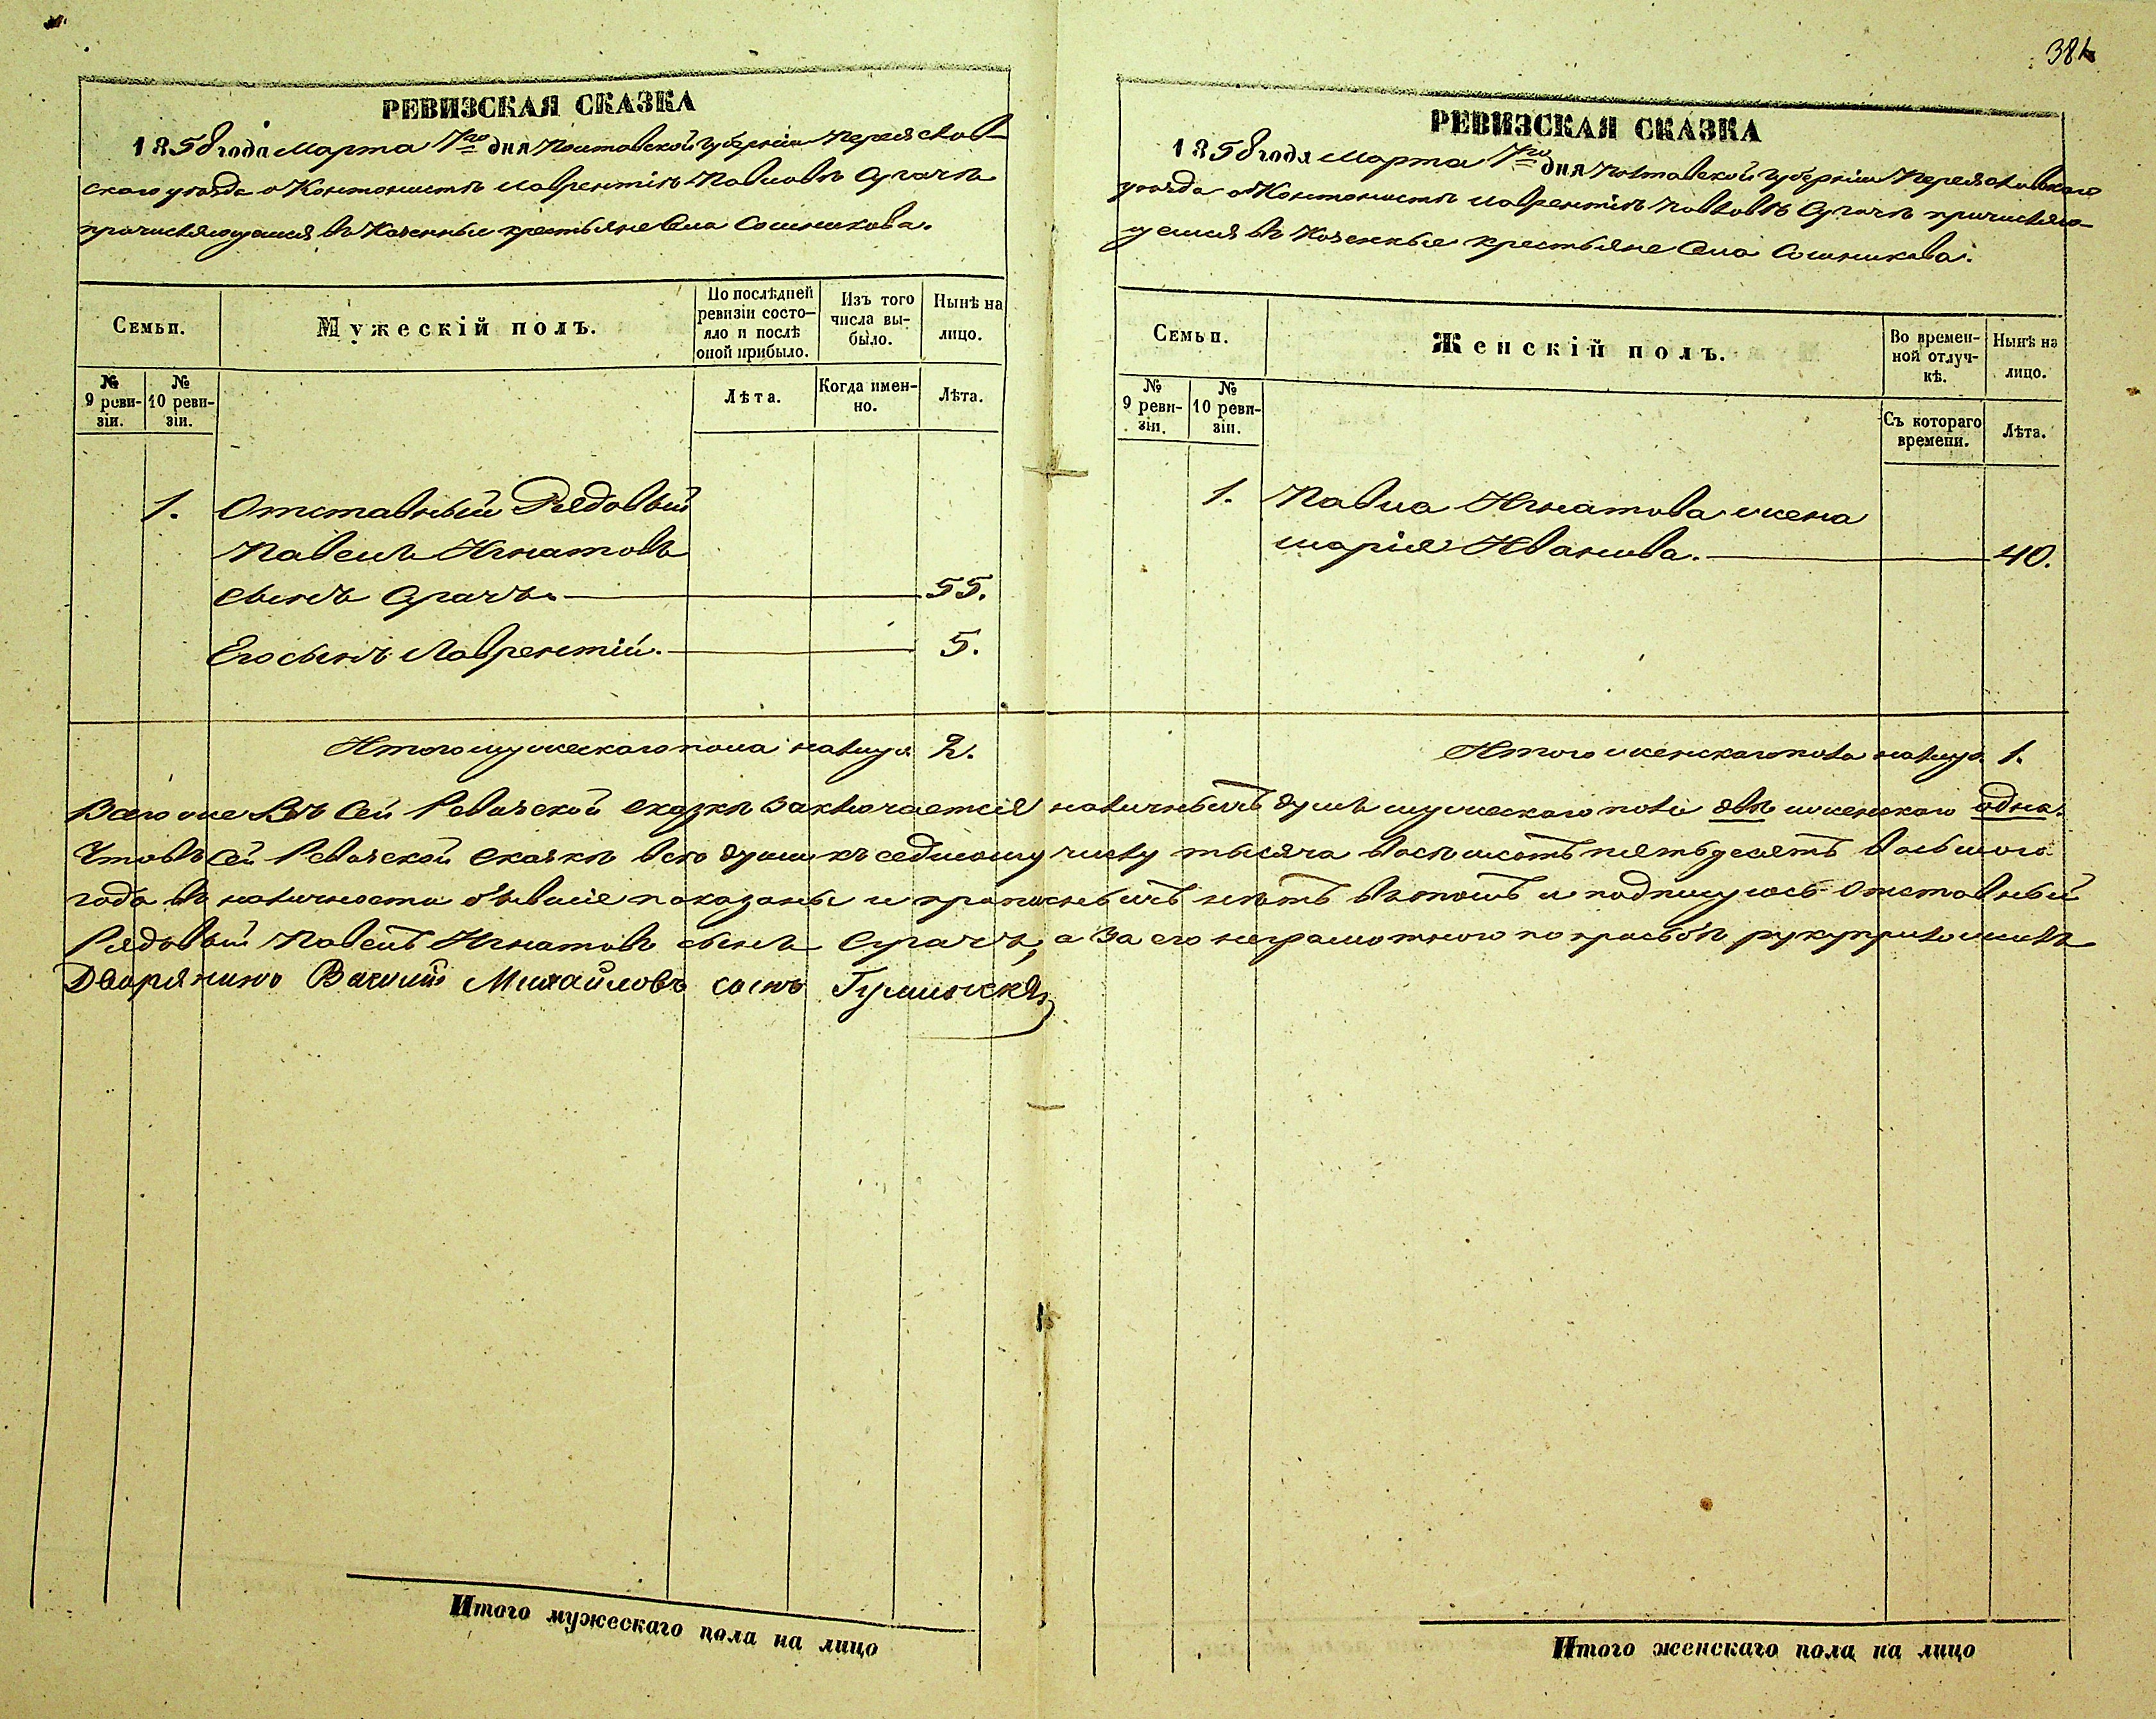 381
РЕВИЗСКАЯ СКАЗКА
1858 года Марта 7го дня Полтавской Губерніи Переяслов-
скаго уѣзда о Кантонистѣ Лаврентіѣ Павловѣ Сугачѣ
причисляющемся въ Казенные крестьяне Села Сошникова.
Семьи.
Мужескій полъ.
По послѣдней ревизіи состо-
яло и послѣ оной прибыло.
Изъ того числа вы-
было.
Нынѣ на лицо.
№ 9 реви-
зіи.
№ 10 реви-
зіи.
Лѣта.
Когда имен-
но.
Лѣта.
1. Отставный Рядовый
Павелъ Игнатовъ
сынъ Сугачъ. 55.
Его сынъ Лаврентій. 5.
Итого мужескаго пола налицо 2.
РЕВИЗСКАЯ СКАЗКА
1858 года Марта 7го дня Полтавской Губерніи Переяславскаго
уѣзда о Кантонистѣ Лаврентіѣ Павловѣ Сугачѣ причисляю-
щемся въ Казенные крестьяне Села Сошникова.
Семьи.
Женскій полъ.
Во времен-
ной отлуч-
кѣ.
Нынѣ на лицо.
№ 9 реви-
зіи.
№ 10 реви-
зіи.
Съ котораго времени.
Лѣта.
1. Павла Игнатова жена
Марія Иванова. 40.
Итого женскаго пола налицо 1.
Всего же Въ Сей Ревизской сказкѣ заключается наличныхъ душъ мужескаго пола двѣ и женскаго одна.
Что въ сей Ревизской сказкѣ всѣ души къ седьмому числу тысяча восемьсотъ пятьдесятъ восьмого
года въ наличности бывшіе показаны и прописныхъ нѣтъ въ томъ и подпишуюсь Отставный
Рядовый Павелъ Игнатовъ сынъ Сугачъ, а за его неграмотного по прозьбѣ руку приложилъ
Дворянинъ Василий Михайловъ сынъ
Итого мужескаго пола на лицо
Итого женскаго пола на лицо